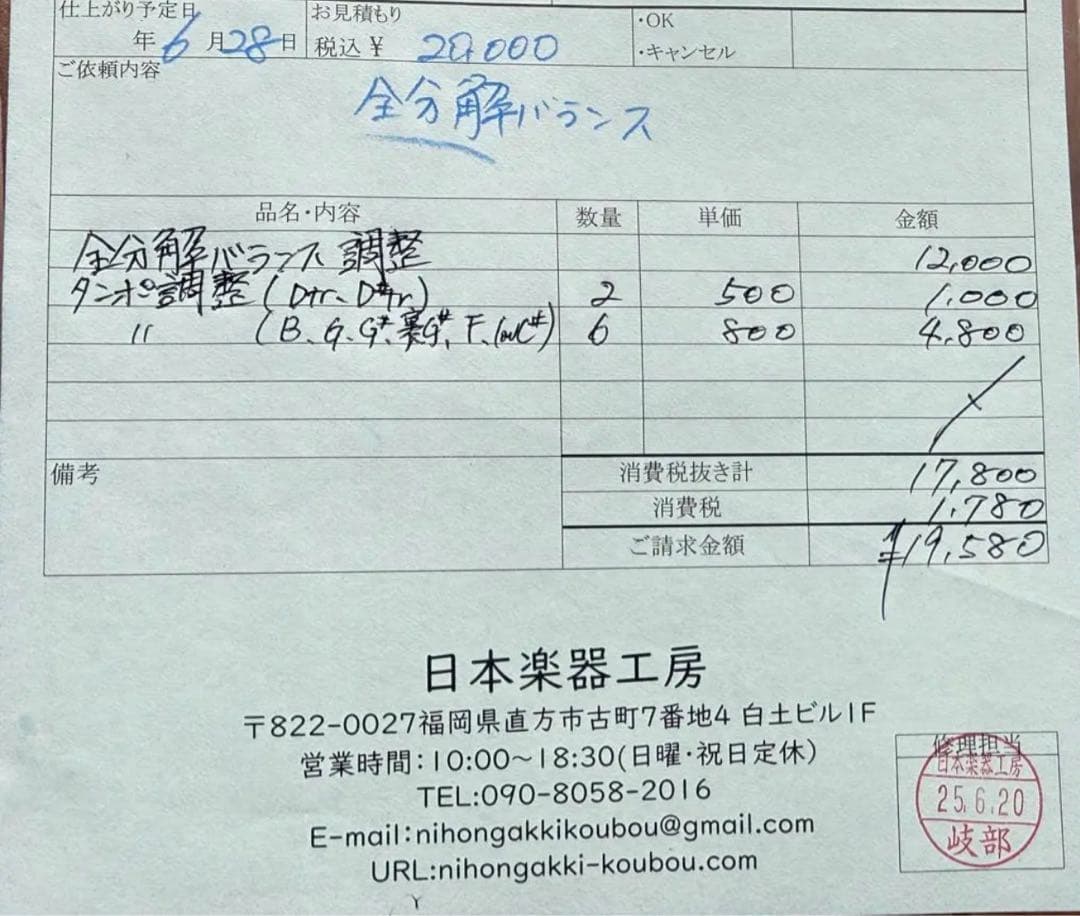 仕上がり予定日
年 6 月 28 日
お見積もり
税込 ¥ 20,000
・OK
・キャンセル
ご依頼内容
全分解バランス
品名・内容 数量 単価 金額
全分解バランス調整 12,000
タンポ調整(Dtr、D#tr) 2 500 1,000
〃 (B、G、G#、裏G#、F、LowC#) 6 800 4,800
備考
消費税抜き計 17,800
消費税 1,780
ご請求金額 ¥19,580
日本楽器工房
〒822-0027福岡県直方市古町7番地4 白土ビル1F
営業時間：10:00~18:30(日曜・祝日定休)
TEL:090-8058-2016
E-mail:nihongakkikoubou@gmail.com
URL:nihongakki-koubou.com
修理担当
日本楽器工房
25.6.20
岐部